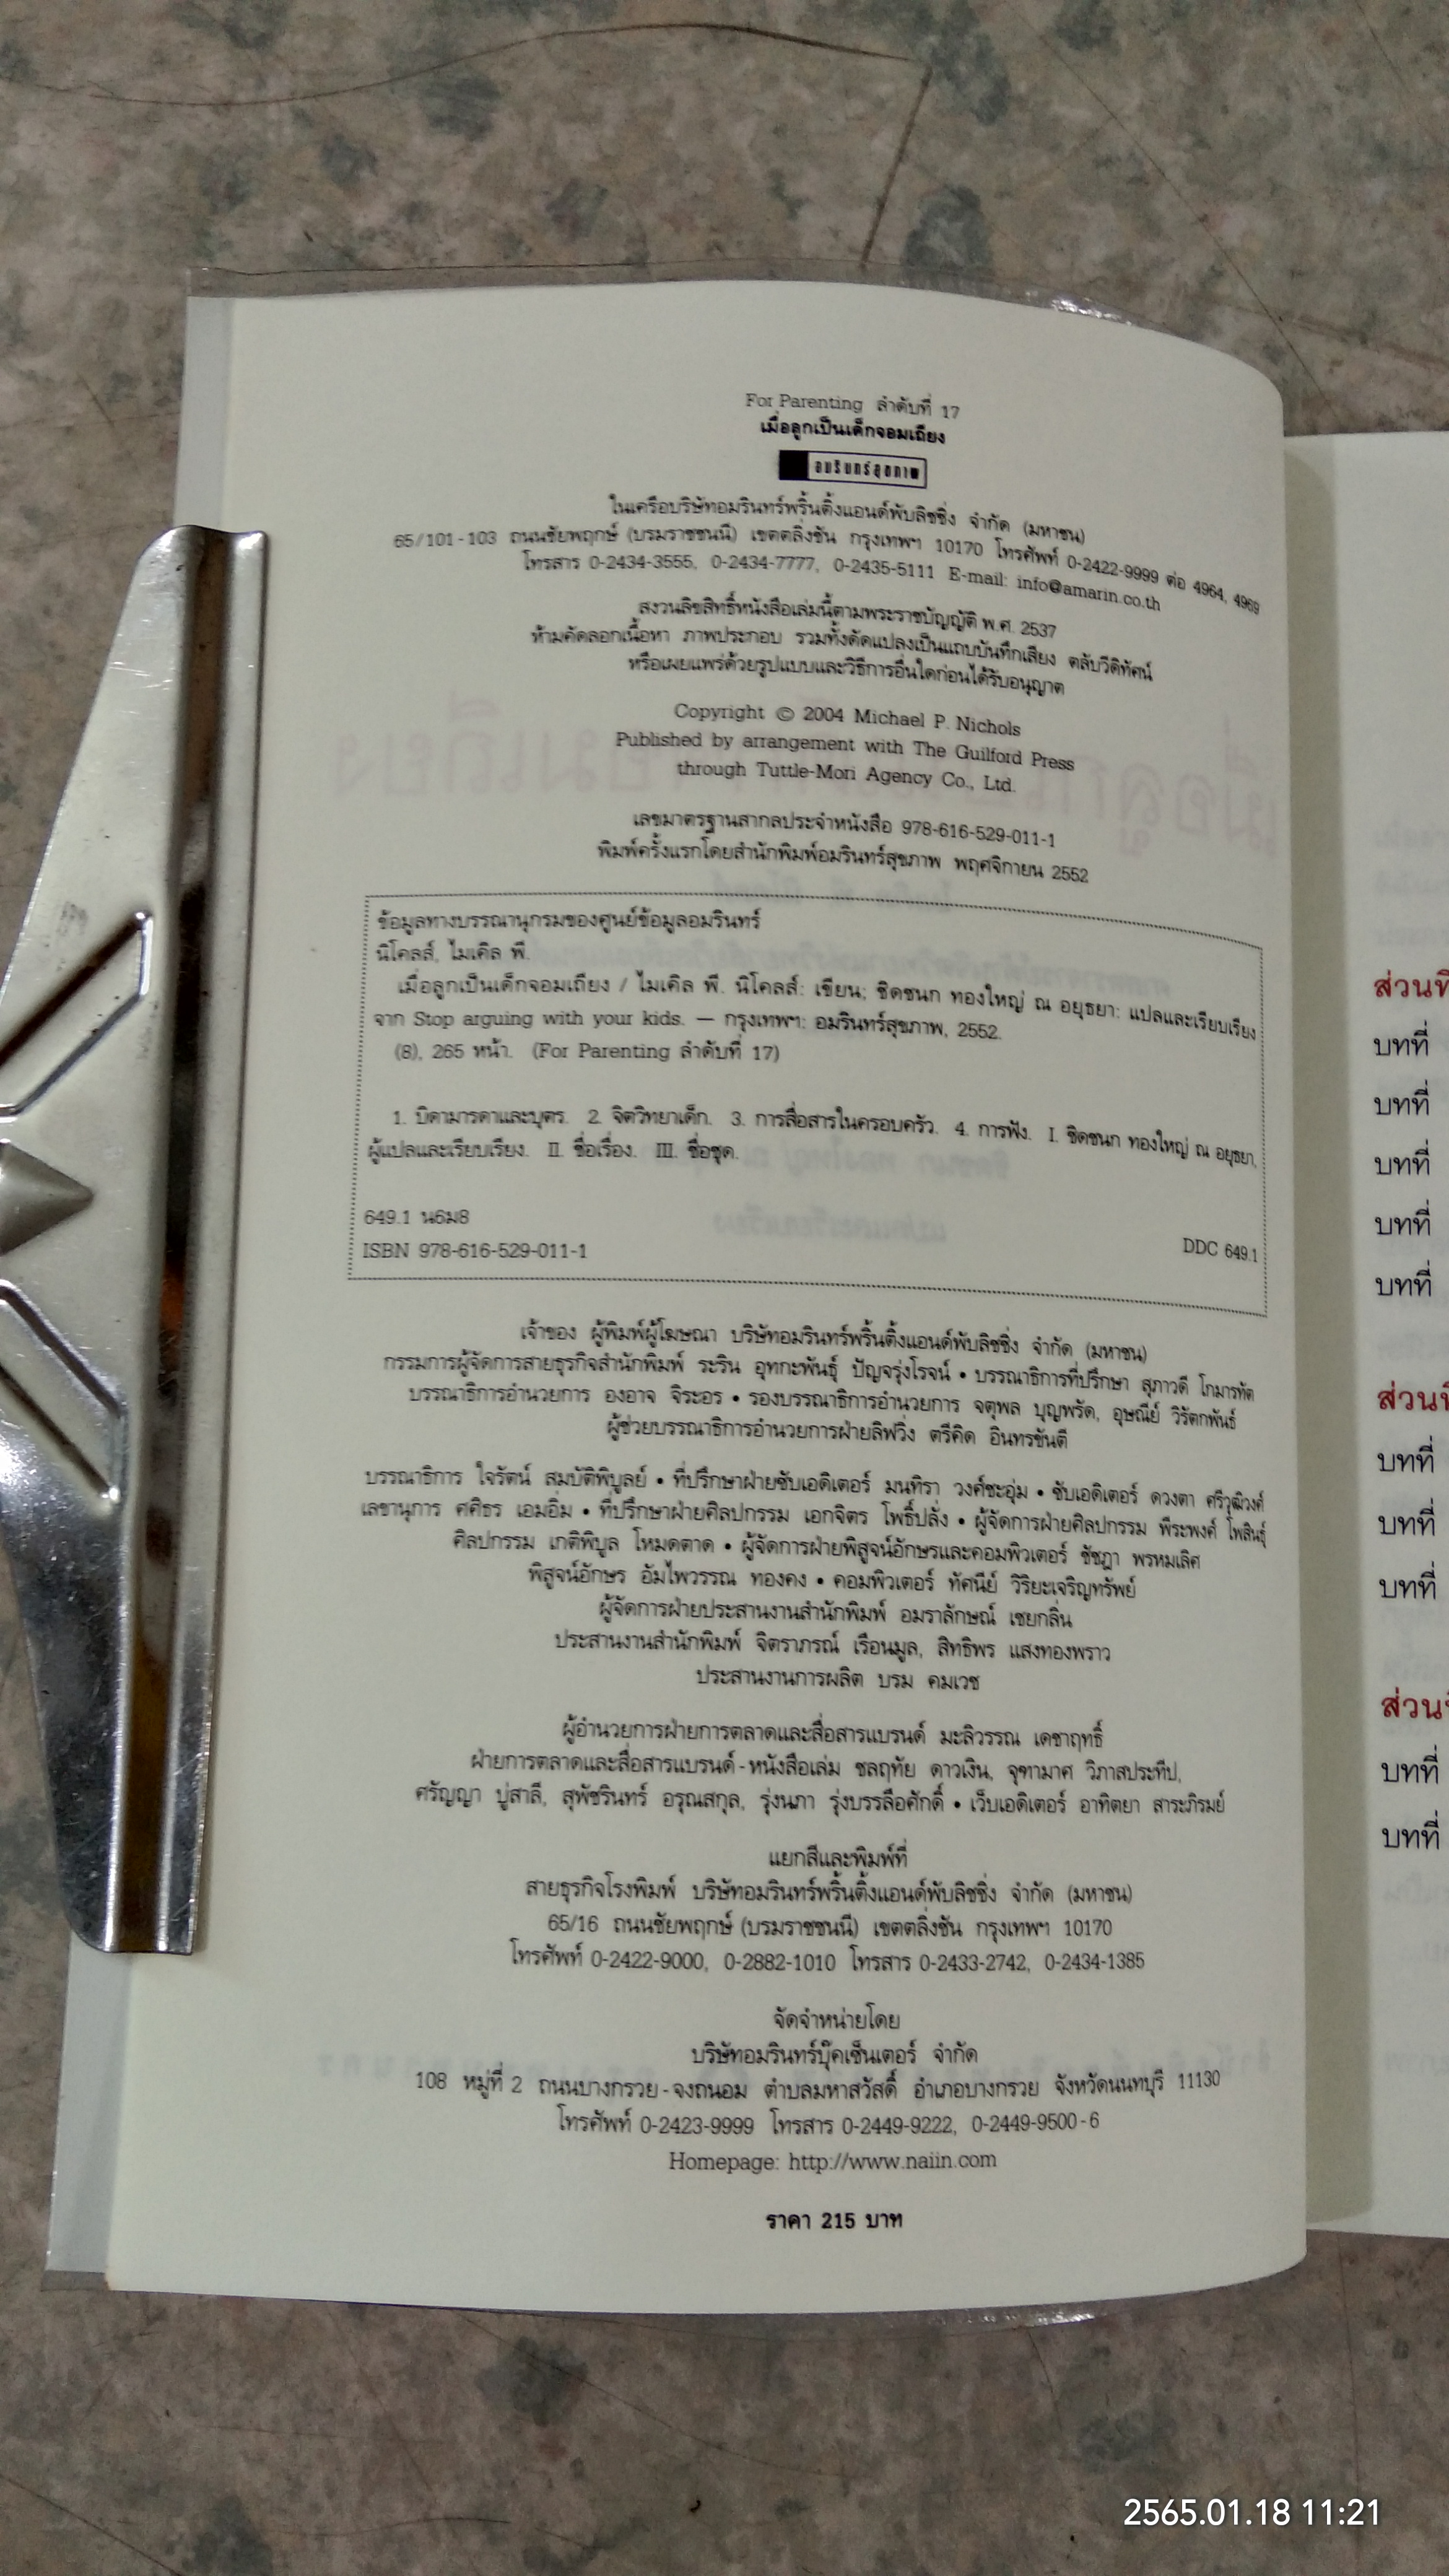 For Parenting ลำดับที่ 17
เมื่อลูกเป็นเด็กจอมเถียง
อมรินทร์สุขภาพ
ในเครือบริษัทอมรินทร์พริ้นติ้งแอนด์พับลิชชิ่ง จำกัด (มหาชน)
65/101-103 ถนนชัยพฤกษ์ (บรมราชชนนี) เขตตลิ่งชัน กรุงเทพฯ 10170 โทรศัพท์ 0-2422-9999 ต่อ 4964, 4969
โทรสาร 0-2434-3555, 0-2434-7777, 0-2435-5111 E-mail: info@amarin.co.th
สงวนลิขสิทธิ์หนังสือเล่มนี้ตามพระราชบัญญัติ พ.ศ. 2537
ห้ามคัดลอกเนื้อหา ภาพประกอบ รวมทั้งดัดแปลงเป็นแถบบันทึกเสียง ตลับวีดิทัศน์
หรือเผยแพร่ด้วยรูปแบบและวิธีการอื่นใดก่อนได้รับอนุญาต
Copyright © 2004 Michael P. Nichols
Published by arrangement with The Guilford Press
through Tuttle-Mori Agency Co., Ltd.
เลขมาตรฐานสากลประจำหนังสือ 978-616-529-011-1
พิมพ์ครั้งแรกโดยสำนักพิมพ์อมรินทร์สุขภาพ พฤศจิกายน 2552
ข้อมูลทางบรรณานุกรมของศูนย์ข้อมูลอมรินทร์
นิโคลส์, ไมเคิล พี.
เมื่อลูกเป็นเด็กจอมเถียง / ไมเคิล พี. นิโคลส์: เขียน; ชิดชนก ทองใหญ่ ณ อยุธยา: แปลและเรียบเรียง
จาก Stop arguing with your kids. — กรุงเทพฯ: อมรินทร์สุขภาพ, 2552.
(8), 265 หน้า. (For Parenting ลำดับที่ 17)
1. บิดามารดาและบุตร. 2. จิตวิทยาเด็ก. 3. การสื่อสารในครอบครัว. 4. การฟัง. I. ชิดชนก ทองใหญ่ ณ อยุธยา,
ผู้แปลและเรียบเรียง. II. ชื่อเรื่อง. III. ชื่อชุด.
649.1 น6ม8
ISBN 978-616-529-011-1 DDC 649.1
เจ้าของ ผู้พิมพ์ผู้โฆษณา บริษัทอมรินทร์พริ้นติ้งแอนด์พับลิชชิ่ง จำกัด (มหาชน)
กรรมการผู้จัดการสายธุรกิจสำนักพิมพ์ ระริน อุทกะพันธุ์ ปัญจรุ่งโรจน์ • บรรณาธิการที่ปรึกษา สุภาวดี โกมารทัต
บรรณาธิการอำนวยการ องอาจ จิระอร • รองบรรณาธิการอำนวยการ จตุพล บุญพรัด, อุษณีย์ วิรัตกพันธ์
ผู้ช่วยบรรณาธิการอำนวยการฝ่ายลิฟวิ่ง ตรีคิด อินทรขันตี
บรรณาธิการ ใจรัตน์ สมบัติพิบูลย์ • ที่ปรึกษาฝ่ายซับเอดิเตอร์ มนทิรา วงศ์ชะอุ่ม • ซับเอดิเตอร์ ดวงตา ศรีวุฒิวงศ์
เลขานุการ ศศิธร เอมอิ่ม • ที่ปรึกษาฝ่ายศิลปกรรม เอกจิตร โพธิ์ปลั่ง • ผู้จัดการฝ่ายศิลปกรรม พีระพงศ์ โพสินธุ์
ศิลปกรรม เกติพิบูล โหมดตาด • ผู้จัดการฝ่ายพิสูจน์อักษรและคอมพิวเตอร์ ชัชฎา พรหมเลิศ
พิสูจน์อักษร อัมไพวรรณ ทองคง • คอมพิวเตอร์ ทัศนีย์ วิริยะเจริญทรัพย์
ผู้จัดการฝ่ายประสานงานสำนักพิมพ์ อมราลักษณ์ เชยกลิ่น
ประสานงานสำนักพิมพ์ จิตราภรณ์ เรือนมูล, สิทธิพร แสงทองพราว
ประสานงานการผลิต บรม คมเวช
ผู้อำนวยการฝ่ายการตลาดและสื่อสารแบรนด์ มะลิวรรณ เดชาฤทธิ์
ฝ่ายการตลาดและสื่อสารแบรนด์-หนังสือเล่ม ชลฤทัย ดาวเงิน, จุฑามาศ วิภาสประทีป,
ศรัญญา บู่สาลี, สุพัชรินทร์ อรุณสกุล, รุ่งนภา รุ่งบรรลือศักดิ์ • เว็บเอดิเตอร์ อาทิตยา สาระภิรมย์
แยกสีและพิมพ์ที่
สายธุรกิจโรงพิมพ์ บริษัทอมรินทร์พริ้นติ้งแอนด์พับลิชชิ่ง จำกัด (มหาชน)
65/16 ถนนชัยพฤกษ์ (บรมราชชนนี) เขตตลิ่งชัน กรุงเทพฯ 10170
โทรศัพท์ 0-2422-9000, 0-2882-1010 โทรสาร 0-2433-2742, 0-2434-1385
จัดจำหน่ายโดย
บริษัทอมรินทร์บุ๊คเซ็นเตอร์ จำกัด
108 หมู่ที่ 2 ถนนบางกรวย-จงถนอม ตำบลมหาสวัสดิ์ อำเภอบางกรวย จังหวัดนนทบุรี 11130
โทรศัพท์ 0-2423-9999 โทรสาร 0-2449-9222, 0-2449-9500-6
Homepage: http://www.naiin.com
ราคา 215 บาท
ส่วนที่
บทที่
บทที่
บทที่
บทที่
บทที่
ส่วนที่
บทที่
บทที่
บทที่
ส่วนที่
บทที่
บทที่
2565.01.18 11:21